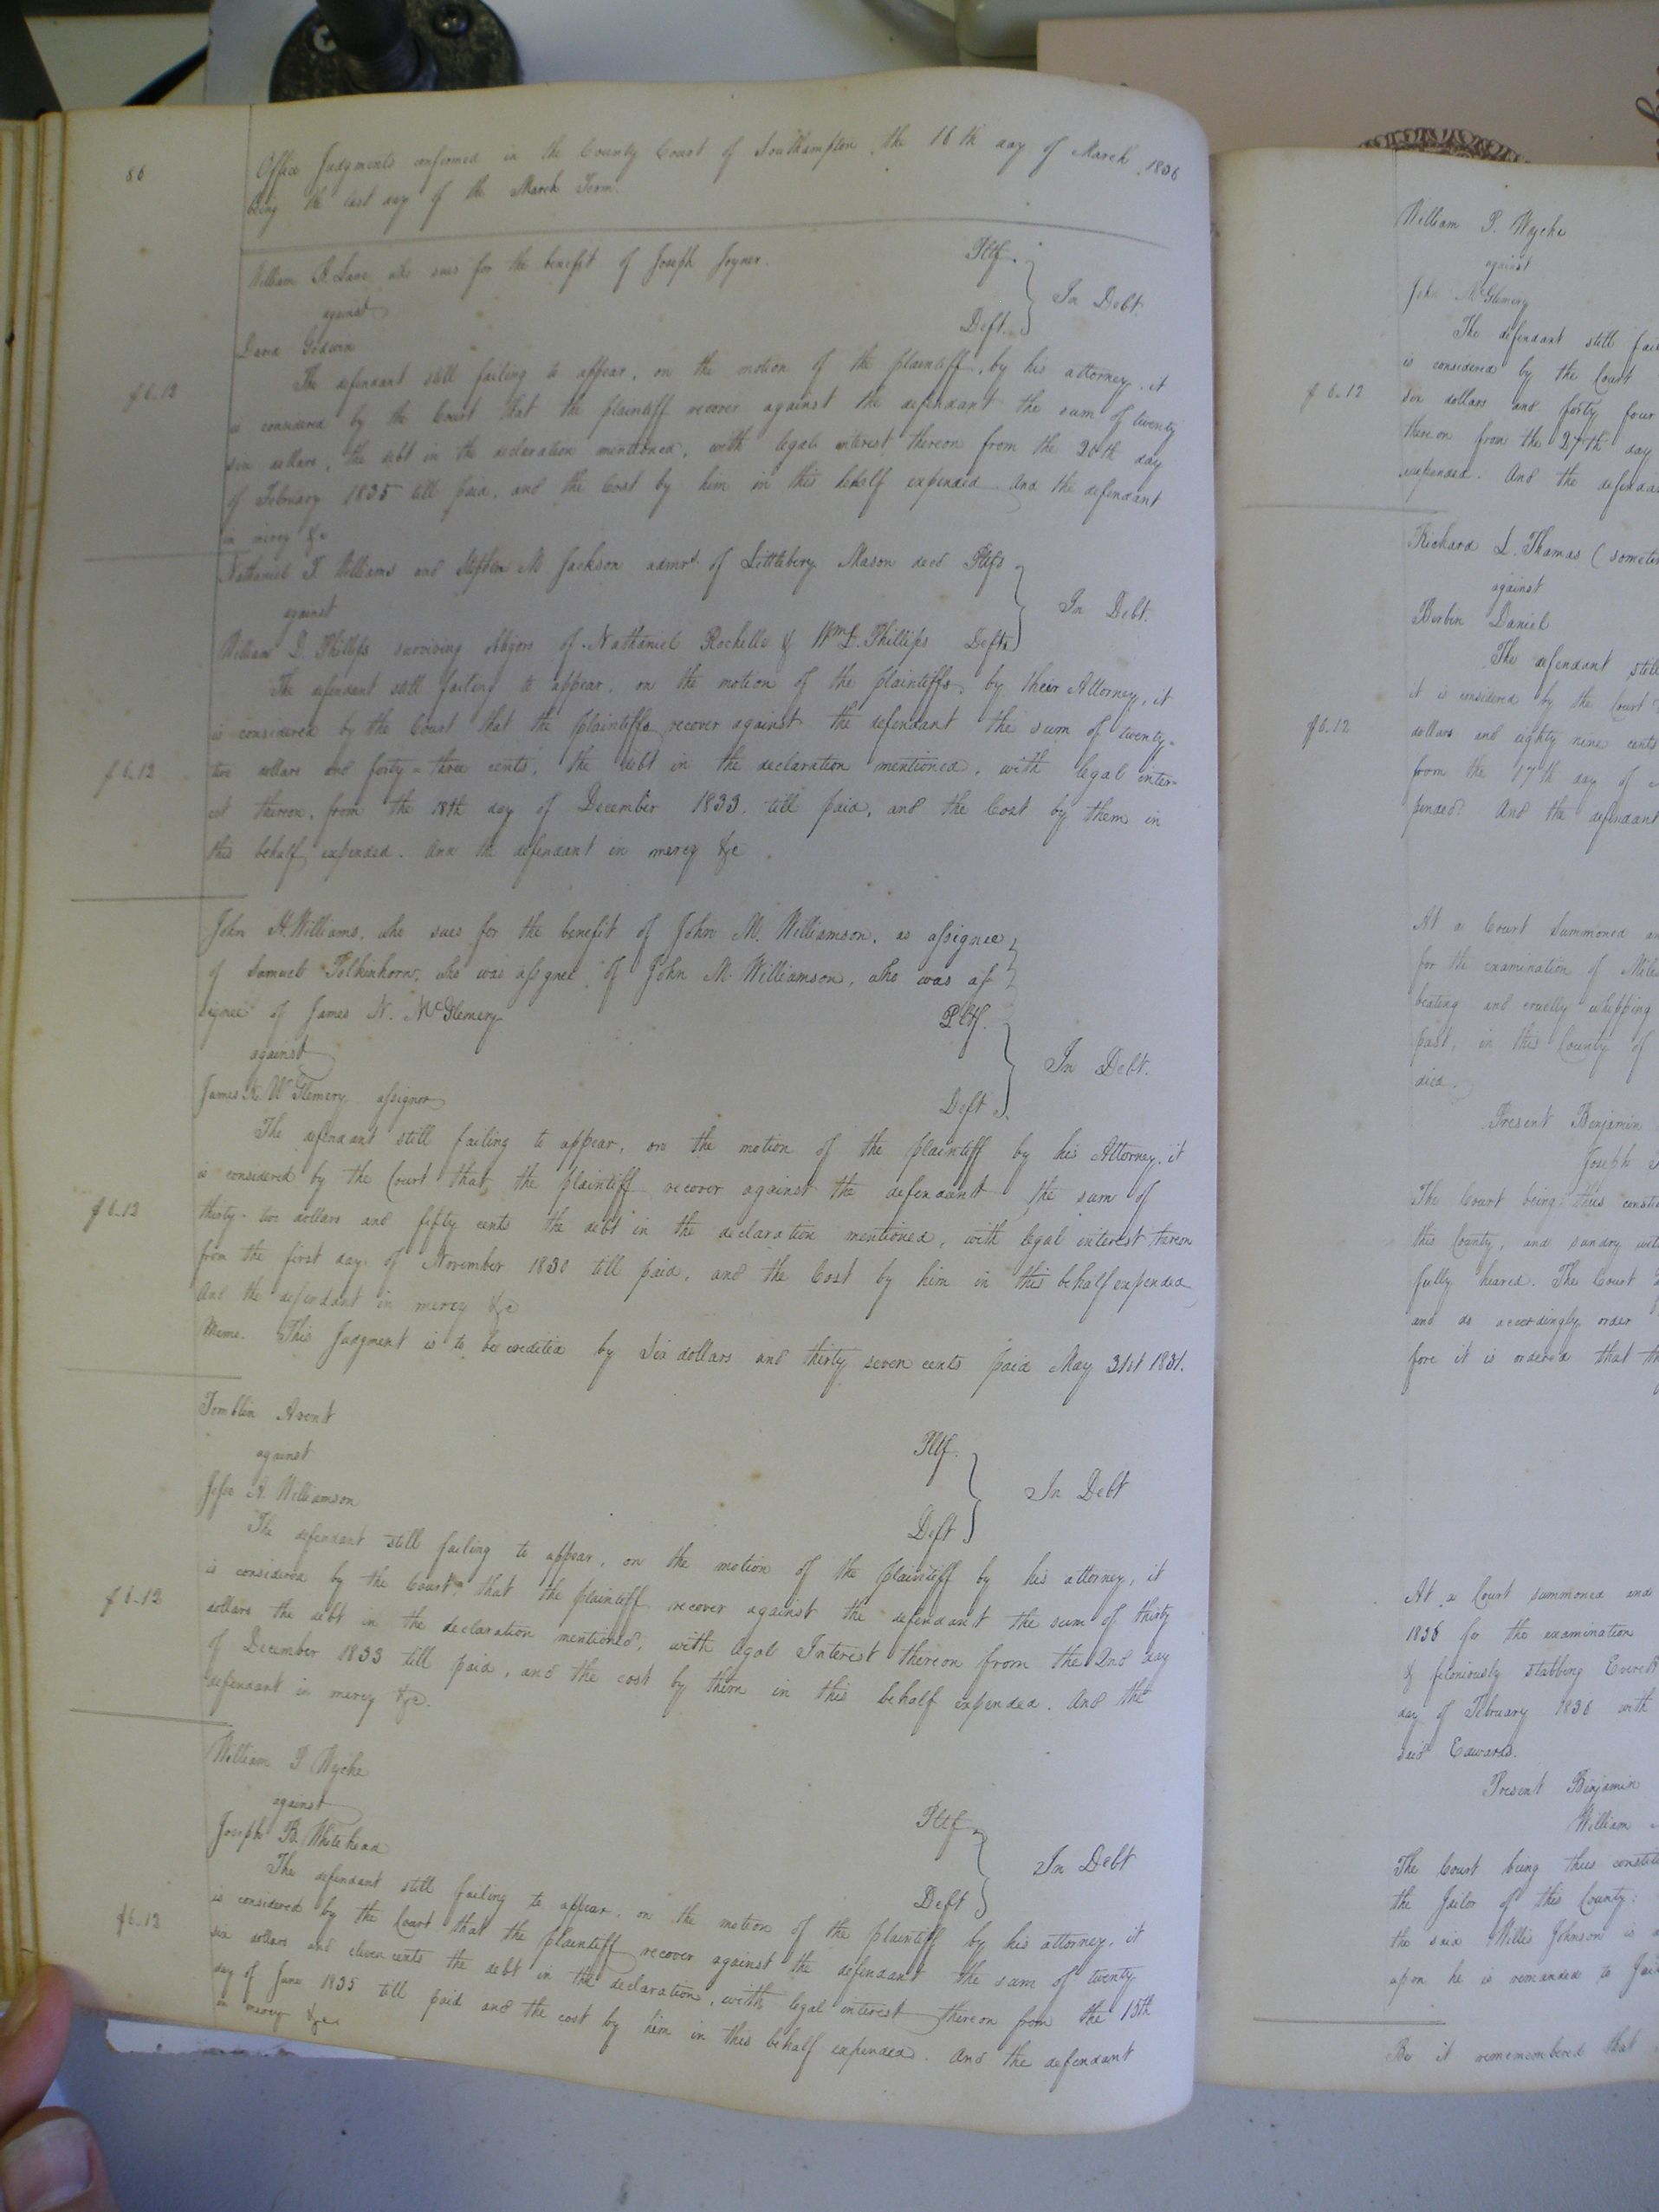 86
Office Judgments confirmed in the County Court of Southampton, the 16th day of March, 1836
being the last day of the March Term.
William B. Lane who sues for the benefit of Joseph Joyner. Pltf.
against In Debt.
David Godwin Deft.
The defendant still failing to appear, on the motion of the plaintiff, by his attorney, it
is considered by the Court that the plaintiff recover against the defendant the sum of twenty
six dollars, the debt in the declaration mentioned, with legal interest thereon from the 20th day
of February 1835 till paid, and the Cost by him in this behalf expended And the defendant
in mercy &c
Nathaniel T. Williams and Stephen M Jackson admrs of Littlebery Mason decd Pltfs
against In Debt.
William D. Phillips surviving obligors of Nathaniel Rochelle & Wm D. Phillips Defts
The defendant still failing to appear, on the motion of the plaintiffs, by their Attorney, it
is considered by the Court that the plaintiffs recover against the defendant the sum of twenty-
two dollars and forty-three cents, the debt in the declaration mentioned, with legal inter-
est thereon, from the 18th day of December 1833. till paid, and the Cost by them in
this behalf expended. And the defendant in mercy &c.
John H. Williams, who sues for the benefit of John M. Williamson, as assignee
of Samuel Tolkinhorn, who was assignee of John M. Williamson, who was as
signee of James N. McGlemery Pltf.
against In Debt.
James N. McGlemery assignor Deft.
The defendant still failing to appear, on the motion of the plaintiff by his Attorney, it
is considered by the Court that, the plaintiff recover against the defendant the sum of
thirty-two dollars and fifty cents the debt in the declaration mentioned, with legal interest thereon
from the first day of November 1830 till paid, and the Cost by him in this behalf expended
And the defendant in mercy &c
Memo. This Judgment is to be credited by Six dollars and thirty seven cents paid May 31st 1831.
Tomblin Avent Pltf.
against In Debt
Jesse A. Williamson Deft
The defendant still failing to appear, on the motion of the plaintiff by his attorney, it
is considered by the Court that the plaintiff recover against the defendant the sum of thirty
dollars the debt in the declaration mentioned, with legal Interest thereon from the 2nd day
of December 1833 till paid, and the cost by them in this behalf expended. And the
defendant in mercy &c.
William P Wyche Pltf
against In Debt
Joseph B. Whitehead Deft
The defendant still failing to appear on the motion of the plaintiff by his attorney, it
is considered by the Court that the plaintiff recover against the defendant the sum of twenty
six dollars and eleven cents the debt in the declaration, with legal interest thereon from the 15th
day of June 1835 till paid and the cost by him in this behalf expended. And the defendant
in mercy &c
William P. Wyche
against
John McGlemery
The defendant still
is considered by the Court
six dollars and forty four
thereon from the 27th day
expended. And the
Richard L. Thomas
against
Berbin Daniel
The defendant still
it is considered by the Court
dollars and eighty nine cents
from the 17th day of
pended And the defendant
At a Court Summoned
for the examination of
beating and cruelly whipping
past, in this County of
died.
Present Benjamin
Joseph
The Court being thus
this County, and sundry
fully heard. The Court
and do accordingly order
fore it is ordered that
At a Court summoned and
1836 for the examination
& feloniously stabbing
day of February 1836 with
said Edwards.
Present Benjamin
William
The Court being thus
the Jailor of this County:
the said Willis Johnson is
upon he is remanded to
Be it rememembered that